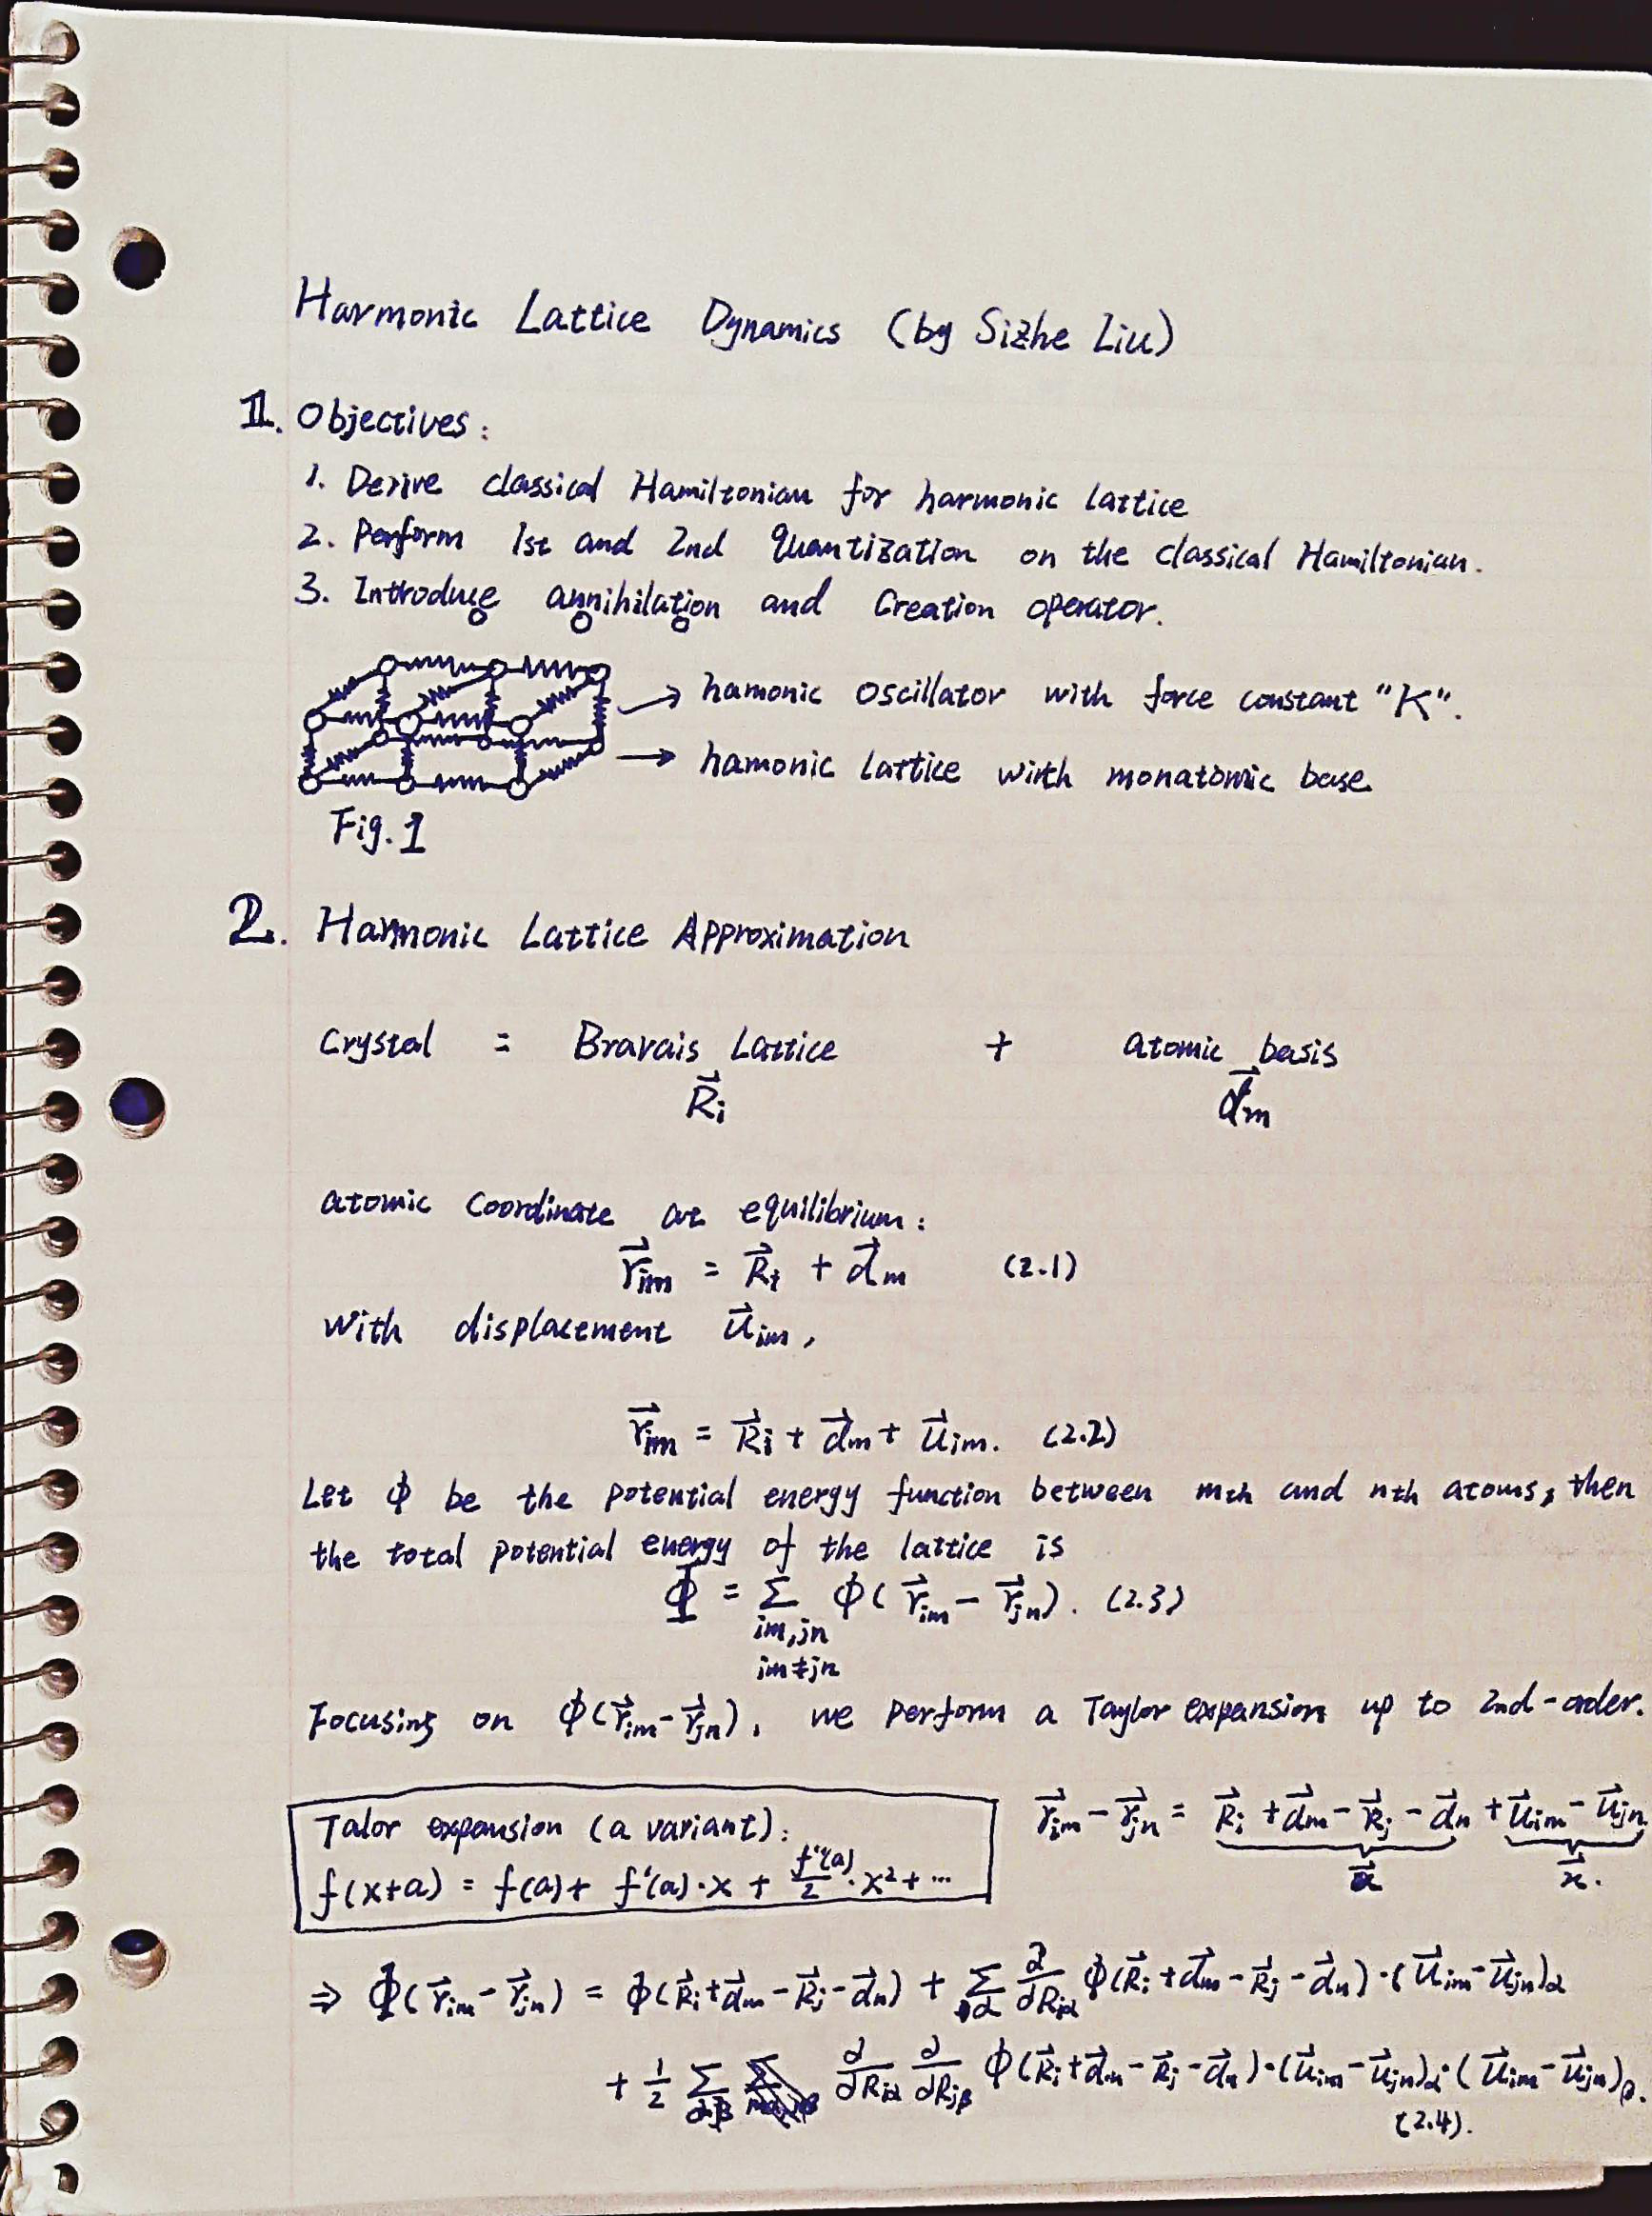 Harmonic Lattice Dynamics (by Sizhe Liu)
1. Objectives:
1. Derive classical Hamiltonian for harmonic lattice
2. Perform 1st and 2nd Quantization on the classical Hamiltonian.
3. Introduce annihilation and Creation operator.
→ hamonic oscillator with force constant "K".
→ hamonic lattice with monatomic base
Fig. 1
2. Harmonic Lattice Approximation
Crystal = Bravais Lattice + atomic basis
R⃗ᵢ d⃗ₘ
atomic coordinate at equilibrium:
r⃗_im = R⃗_i + d⃗_m (2.1)
with displacement u⃗_im,
r⃗_im = R⃗_i + d⃗_m + u⃗_im. (2.2)
Let ϕ be the potential energy function between mth and nth atoms, then
the total potential energy of the lattice is
Φ = Σ ϕ(r⃗_im − r⃗_jn). (2.3)
im,jn
im≠jn
Focusing on ϕ(r⃗_im − r⃗_jn), we perform a Taylor expansion up to 2nd-order.
Talor expansion (a variant):
f(x+a) = f(a) + f'(a)·x + f''(a)/2 ·x² + ···
r⃗_im − r⃗_jn = R⃗_i + d⃗_m − R⃗_j − d⃗_n + u⃗_im − u⃗_jn
a⃗ x⃗.
⇒ Φ(r⃗_im − r⃗_jn) = ϕ(R⃗_i + d⃗_m − R⃗_j − d⃗_n) + Σ_α ∂/∂R_iα ϕ(R⃗_i + d⃗_m − R⃗_j − d⃗_n)·(u⃗_im − u⃗_jn)_α
+ 1/2 Σ_αβ ∂/∂R_iα ∂/∂R_jβ ϕ(R⃗_i + d⃗_m − R⃗_j − d⃗_n)·(u⃗_im − u⃗_jn)_α·(u⃗_im − u⃗_jn)_β.
(2.4).